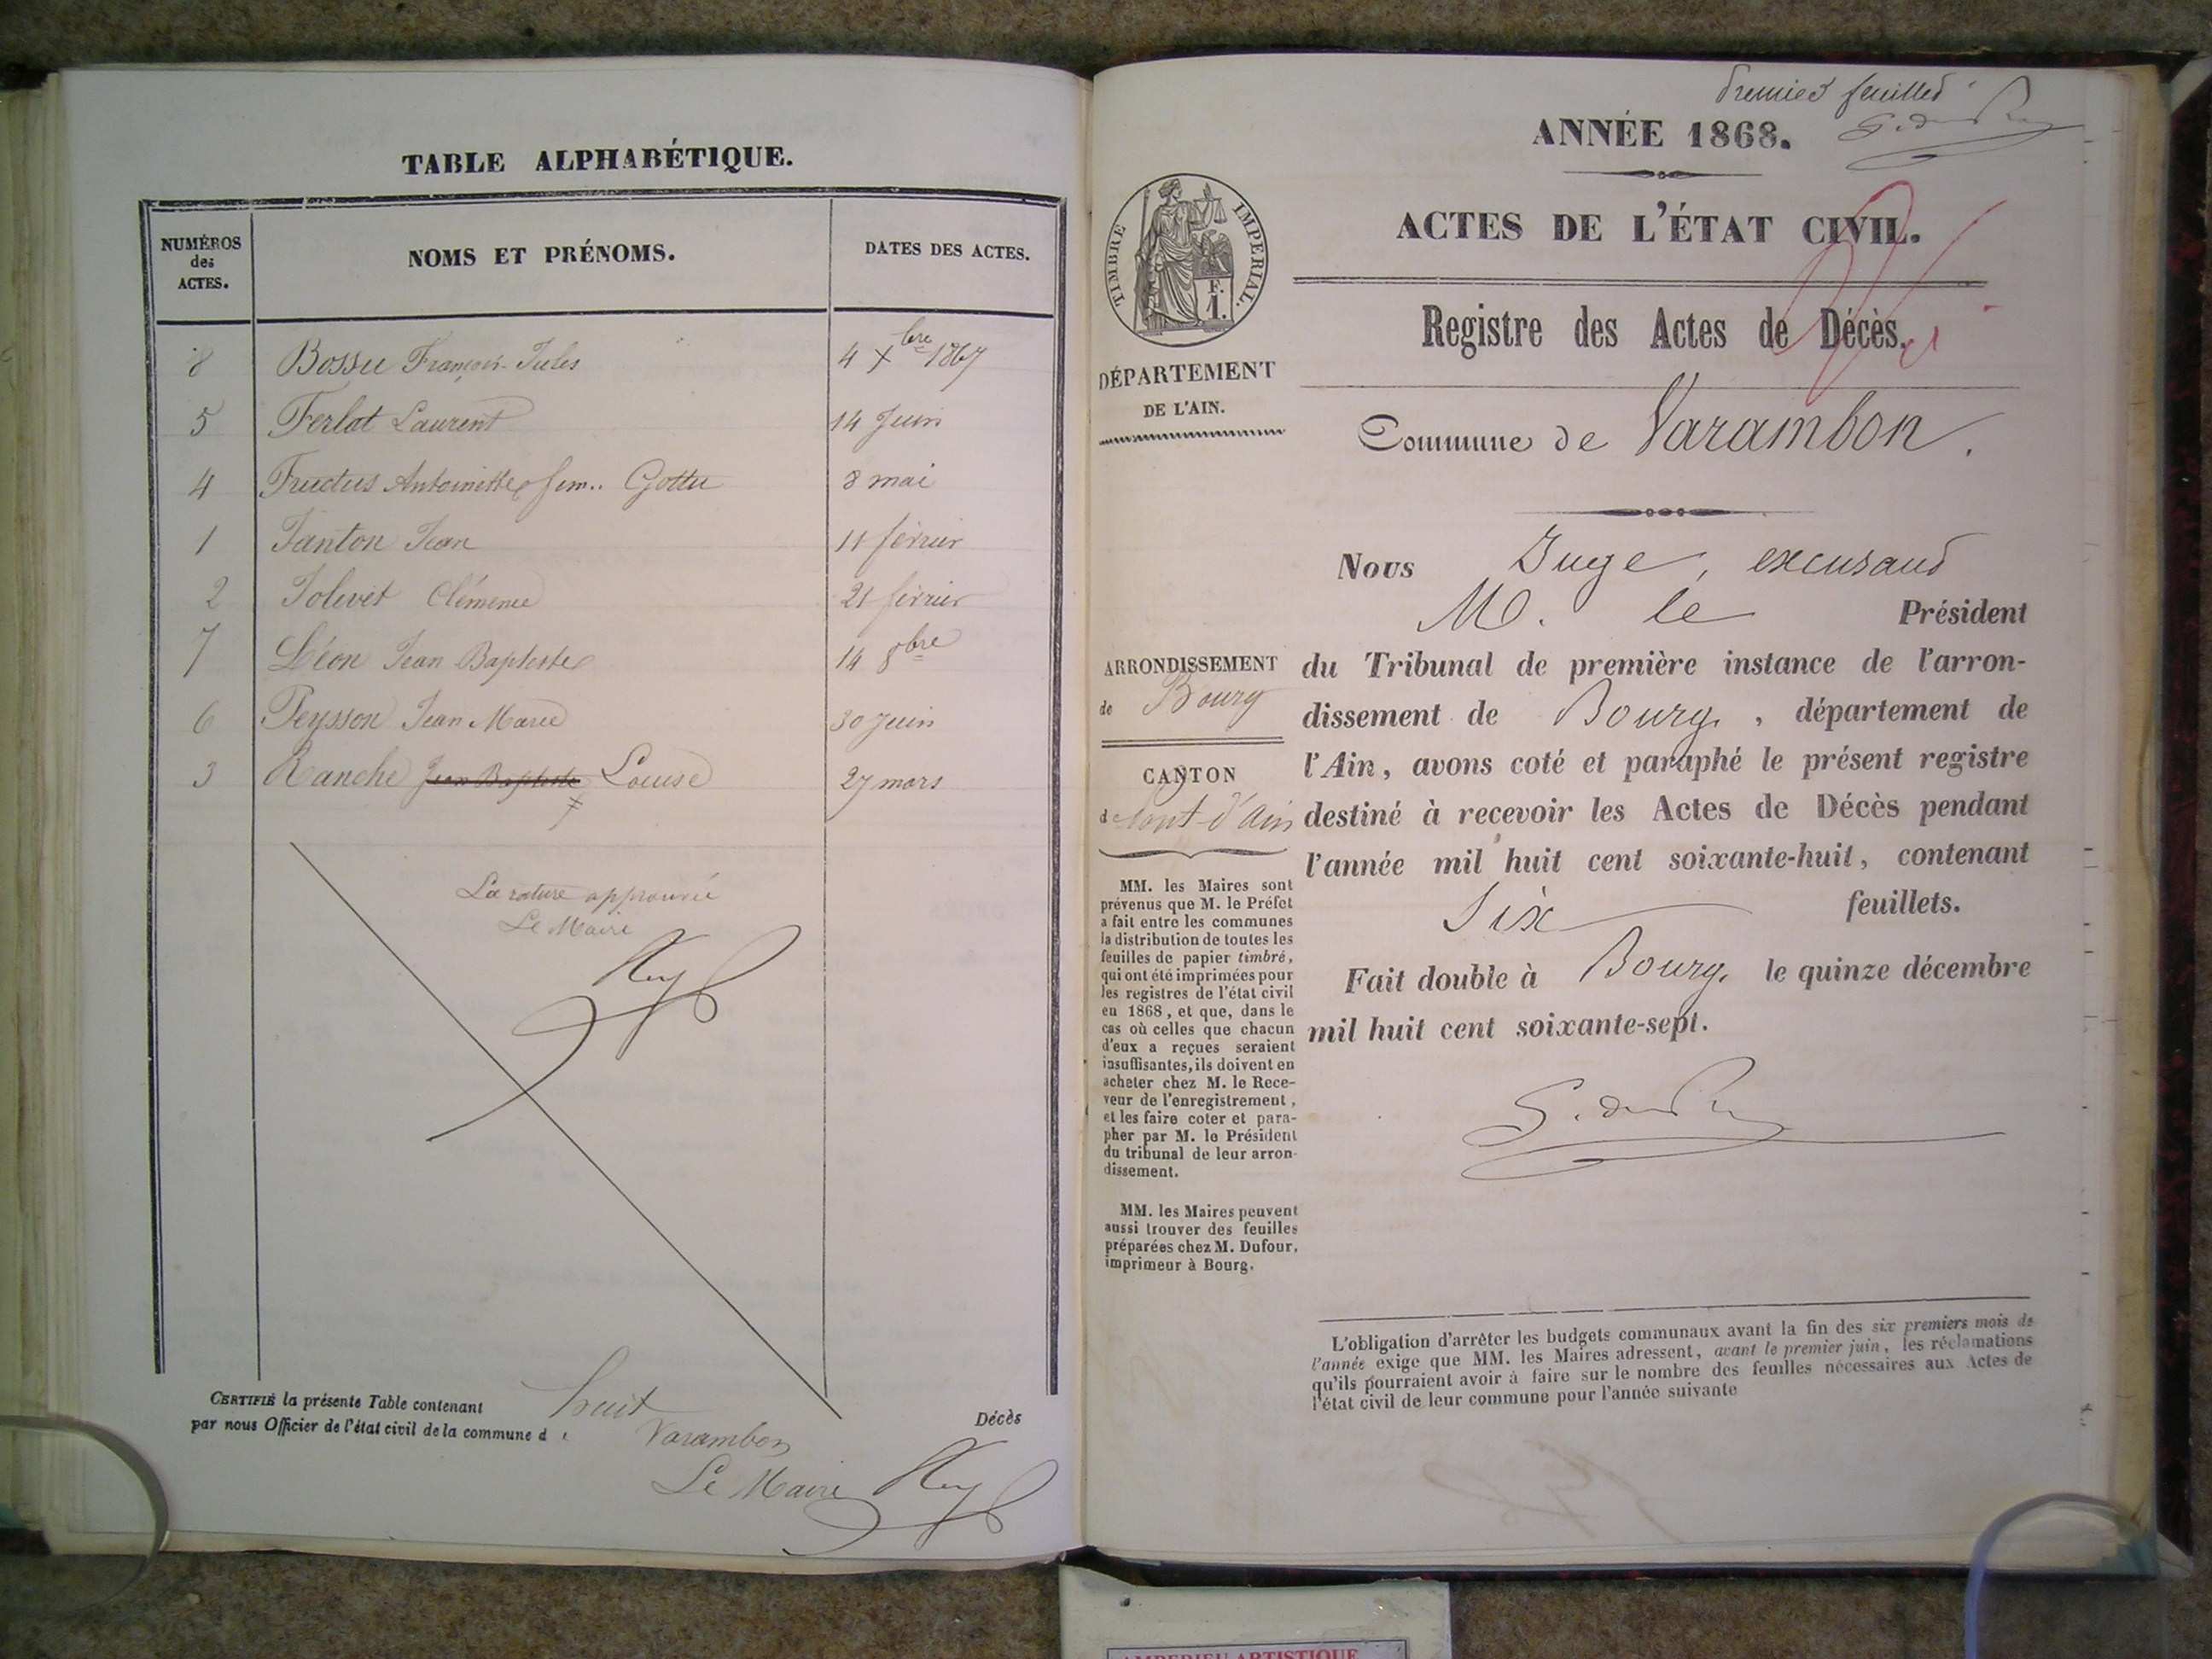 TABLE ALPHABÉTIQUE.
NUMÉROS des ACTES.
NOMS ET PRÉNOMS.
DATES DES ACTES.
8 Bossu François-Jules 4 Xbre 1867
5 Ferlat Laurent 14 Juin
4 Fructus Antoinette fem.. Gottu 8 mai
1 Janton Jean 11 février
2 Jolivet Clémence 21 février
7 Léon Jean Baptiste 14 8bre
6 Peysson Jean Marie 30 Juin
3 Ranche Jean Baptiste Louise 27 mars
La rature approuvée
Le Maire
CERTIFIÉ la présente Table contenant huit Décès
par nous Officier de l'état civil de la commune de Varambon
Le Maire
Premier feuillet
ANNÉE 1868.
ACTES DE L'ÉTAT CIVIL.
TIMBRE IMPERIAL.
F.
1.
Registre des Actes de Décès.
DÉPARTEMENT
DE L'AIN.
Commune de Varambon.
Nous Juge, excusant
M. le Président
du Tribunal de première instance de l'arron-
dissement de Bourg, département de
l'Ain, avons coté et paraphé le présent registre
destiné à recevoir les Actes de Décès pendant
l'année mil huit cent soixante-huit, contenant
Six feuillets.
Fait double à Bourg, le quinze décembre
mil huit cent soixante-sept.
ARRONDISSEMENT
de Bourg
CANTON
de Pont-d'Ain
MM. les Maires sont
prévenus que M. le Préfet
a fait entre les communes
la distribution de toutes les
feuilles de papier timbré,
qui ont été imprimées pour
les registres de l'état civil
en 1868, et que, dans le
cas où celles que chacun
d'eux a reçues seraient
insuffisantes, ils doivent en
acheter chez M. le Rece-
veur de l'enregistrement,
et les faire coter et para-
pher par M. le Président
du tribunal de leur arron-
dissement.
MM. les Maires peuvent
aussi trouver des feuilles
préparées chez M. Dufour,
imprimeur à Bourg.
L'obligation d'arrêter les budgets communaux avant la fin des six premiers mois de
l'année exige que MM. les Maires adressent, avant le premier juin, les réclamations
qu'ils pourraient avoir à faire sur le nombre des feuilles nécessaires aux Actes de
l'état civil de leur commune pour l'année suivante
AMBERIEU ARTISTIQUE